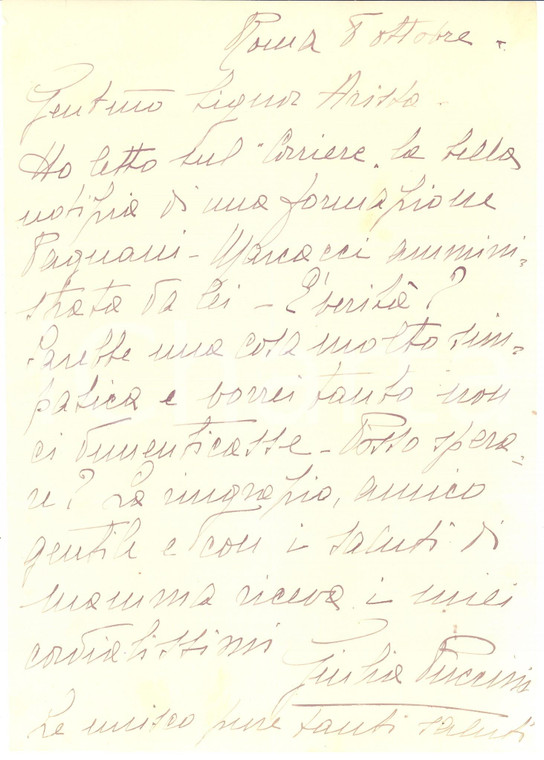 Roma 8 ottobre -
Gentmo Signor Arista -
Ho letto sul "Corriere" la bella
notizia di una formazione
Pagnani - Marcacci ammini-
strata da Lei - È verità?
Sarebbe una cosa molto sim-
patica e vorrei tanto non
ci dimenticasse - Posso spera-
re? La ringrazio, amico
gentile e con i saluti di
mamma riceva i miei
cordialissimi
Giulia Puccini
Le unisco pure tanti saluti